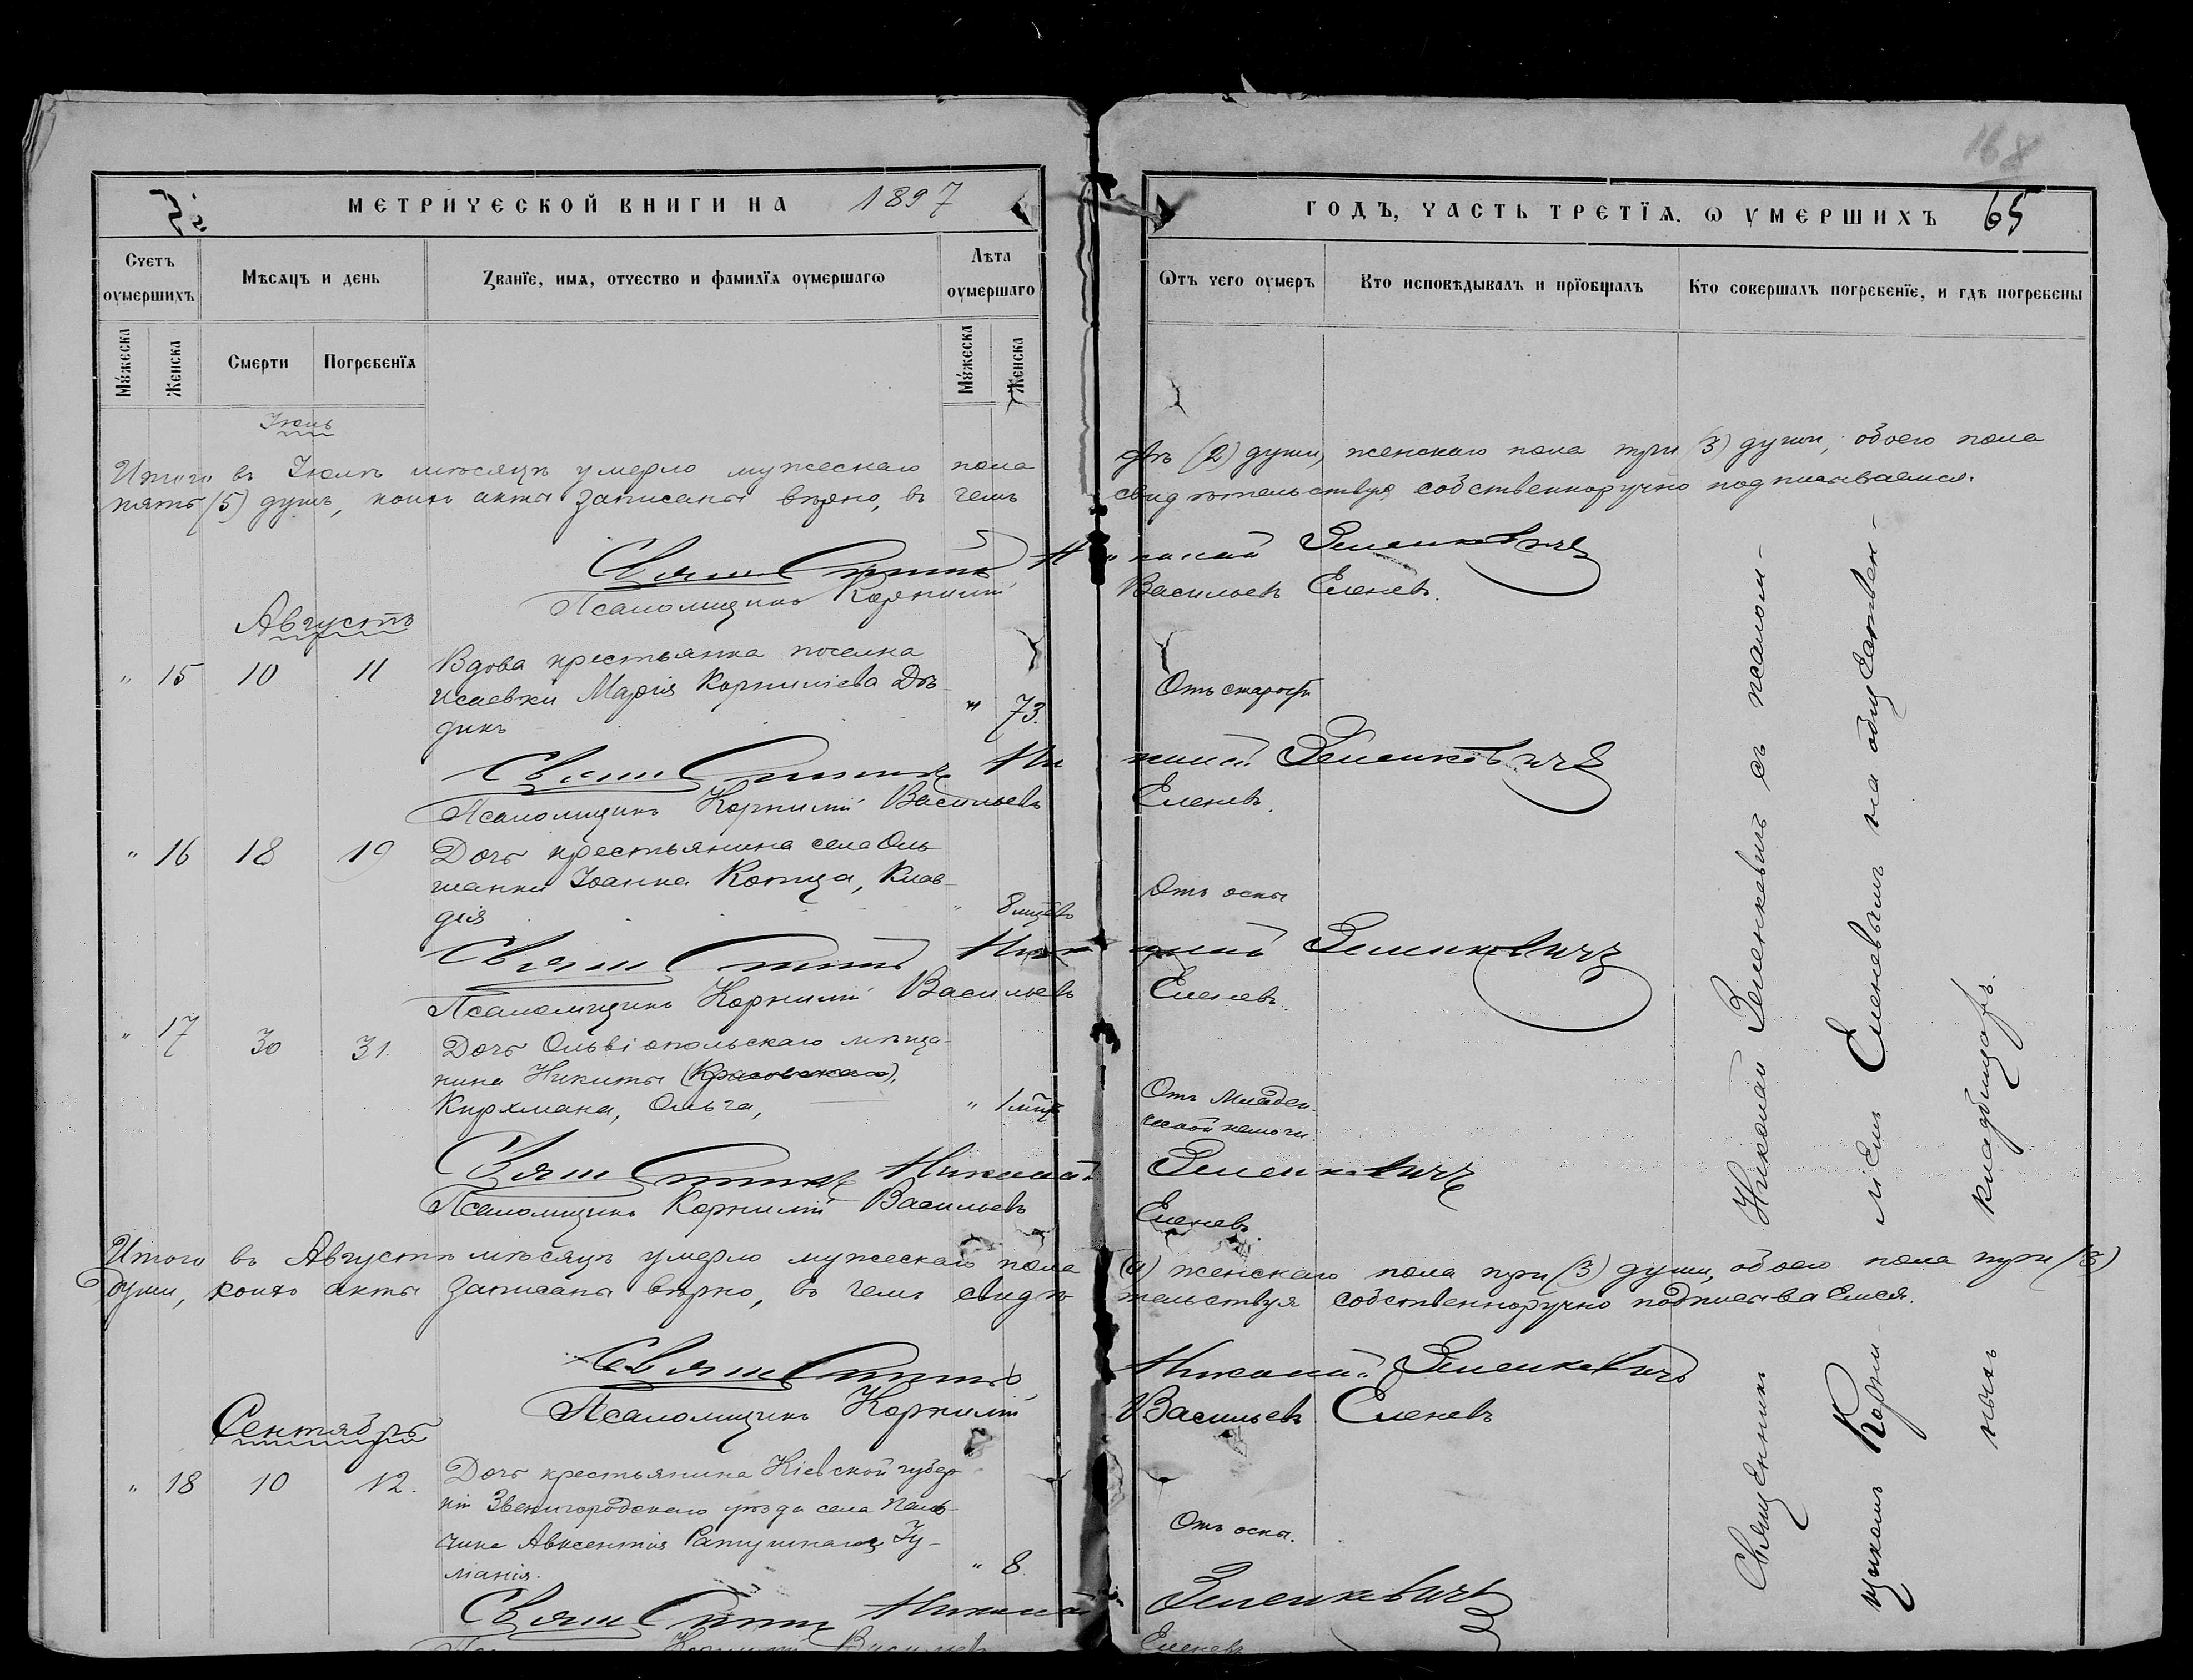 168
МЕТРИЧЕСКОЙ КНИГИ НА 1897
ГОДЪ, ЧАСТЬ ТРЕТІЯ. Ѡ УМЕРШИХЪ 65
Счетъ оумершихъ
Мѣсяцъ и день
Званїе, имя, отчество и фамилїя оумершагѡ
Лѣта оумершаго
Ѿтъ чего оумеръ
Кто исповѣдывалъ и прїобщалъ
Кто совершалъ погребенїе, и гдѣ погребены
Мꙋжеска
Женска
Смерти
Погребенїя
Мꙋжеска
Женска
Іюль
Итого въ Іюлѣ мѣсяцѣ умерло мужескаго пола двѣ (2) души, женскаго пола три (3) души, обоего пола
пять (5) душъ, коихъ акты записаны вѣрно, въ чемъ свидѣтельствуя собственноручно подписываемся.
Священникъ Николай Зеленкевичъ
Псаломщикъ Корнилій Васильевъ Еленевъ.
Августъ
" 15 10 11 Вдова крестьянка поселка
Исаевки Марія Корнилiева Дѣ-
дикъ " 73. Отъ старости
Священникъ Николай Зеленкевичъ
Псаломщикъ Корнилій Васильевъ Еленевъ.
" 16 18 19 Дочь крестьянина села Оль
шанки Іоанна Копца, Клав-
дія " 8 мцевъ Отъ оспы
Священникъ Николай Зеленкевичъ
Псаломщикъ Корнилій Васильевъ Еленевъ.
" 17 30 31. Дочь Ольвіопольскаго мѣща-
нина Никиты (Красовскаго),
Кирхмана, Ольга, " 1 мцъ Отъ младен-
ческой немочи.
Священникъ Николай Зеленкевичъ
Псаломщикъ Корнилій Васильевъ Еленевъ.
Итого въ Августѣ мѣсяцѣ умерло мужескаго пола женскаго пола три (3) души, обоего пола три (3)
души, коихъ акты записаны вѣрно, въ чемъ свидѣтельствуя собственноручно подписываемся.
Священникъ Николай Зеленкевичъ
Псаломщикъ Корнилій Васильевъ Еленевъ
Сентябрь
" 18 10 12. Дочь крестьянина Кіевской губер-
ніи Звенигородскаго уѣзда села
Авксентія
" 8 Отъ оспы.
Священникъ Николай Зеленкевичъ
Корнилій Васильевъ Еленевъ
Священникъ Николай Зеленкевичъ съ псалом-
щикомъ Корниліемъ Еленевымъ на общественномъ
кладбищѣ.